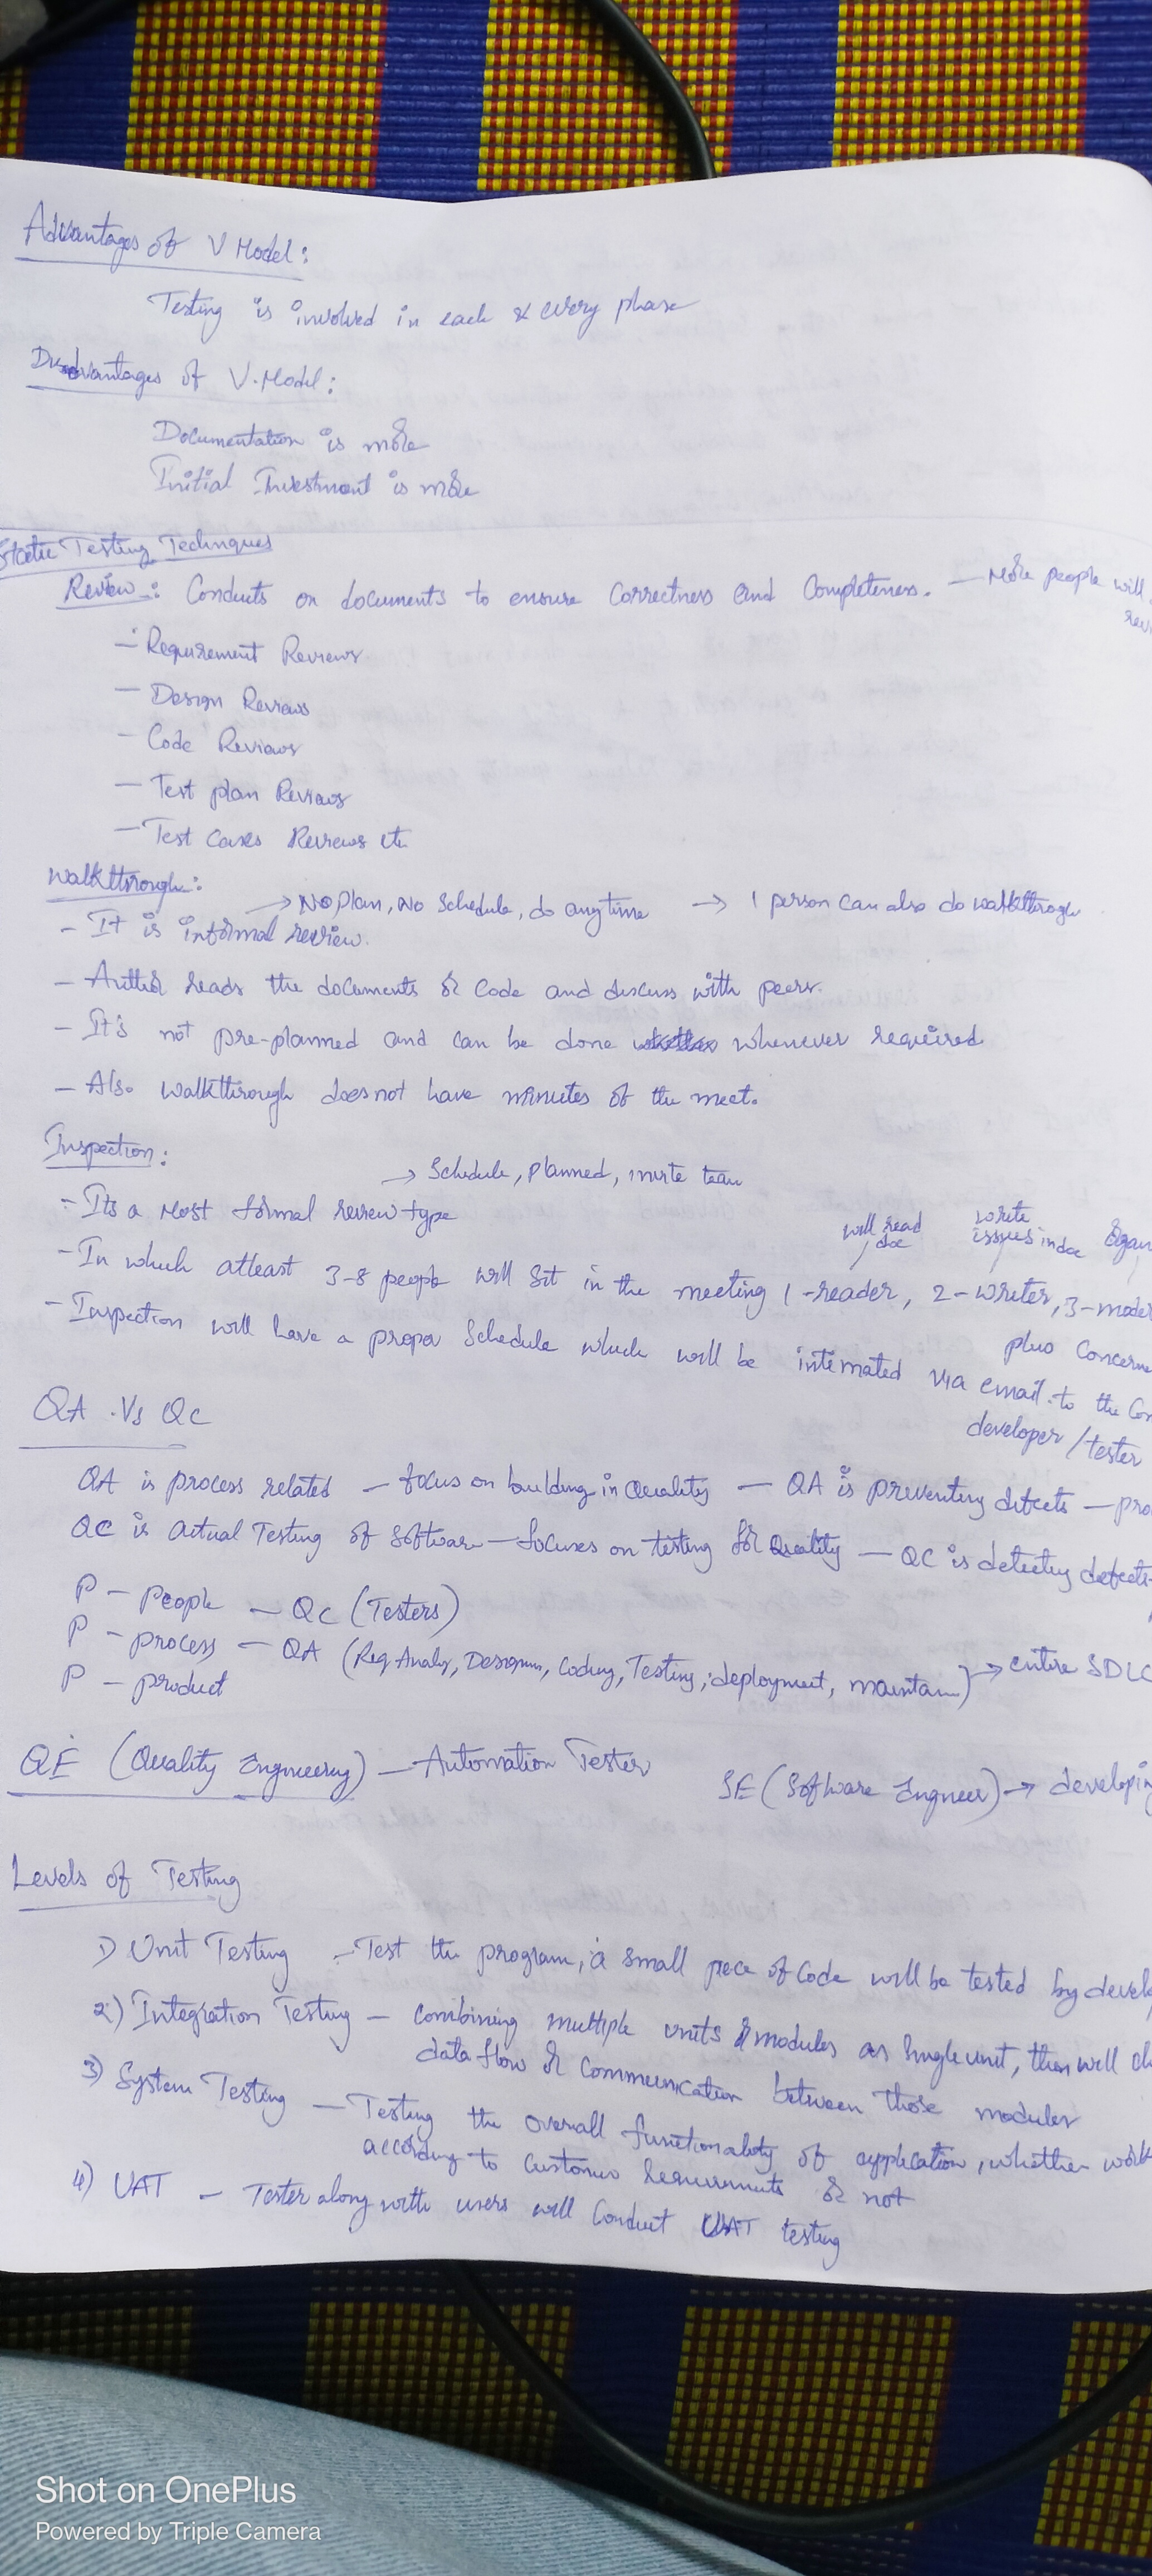 Advantages of V Model:
Testing is involved in each & every phase
Disadvantages of V.Model:
Documentation is more
Initial Investment is more
Static Testing Techniques
Review: Conducts on documents to ensure Correctness and Completeness. — More people will
— Requirement Reviews
— Design Reviews
— Code Reviews
— Test plan Reviews
— Test Cases Reviews etc
Walkthrough:
→ No plan, No Schedule, do anytime → 1 person can also do walkthrough
- It is informal review.
- Author reads the documents or Code and discuss with peers.
- It's not pre-planned and can be done whenever required
- Also Walkthrough does not have minutes of the meet.
Inspection:
→ Schedule, planned, invite team
- Its a Most formal review type
will read doc
write issues in doc
- In which atleast 3-8 people will sit in the meeting 1-reader, 2-writer, 3-moder
plus Concerne
- Inspection will have a proper Schedule which will be intimated via email to the Con
developer/tester
QA Vs QC
QA is process related — focus on building in Quality — QA is preventing defects — pro
QC is Actual Testing of Software — focuses on testing for Quality — QC is detecting defects
P - people — QC (Testers)
P - process — QA (Req Analy, Designin, Coding, Testing, deployment, maintain) → entire SDLC
P - product
QE (Quality Engineering) — Automation Tester
SE (Software Engineer) → developin
Levels of Testing
1) Unit Testing - Test the program, a small piece of Code will be tested by devel
2) Integration Testing — Combining multiple units & modules as single unit, then will ch
data flow & Communication between those modules
3) System Testing — Testing the overall functionality of application, whether work
according to Customer Requirements or not
4) UAT — Tester along with users will Conduct UAT testing
Shot on OnePlus
Powered by Triple Camera